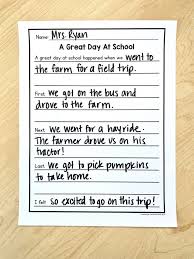 Name: Mrs. Ryan
A Great Day At School
A great day at school happened when we went to
the farm for a field trip.
First we got on the bus and
drove to the farm.
Next we went for a hayride.
The farmer drove us on his
tractor!
Last we got to pick pumpkins
to take home.
I felt so excited to go on this trip!